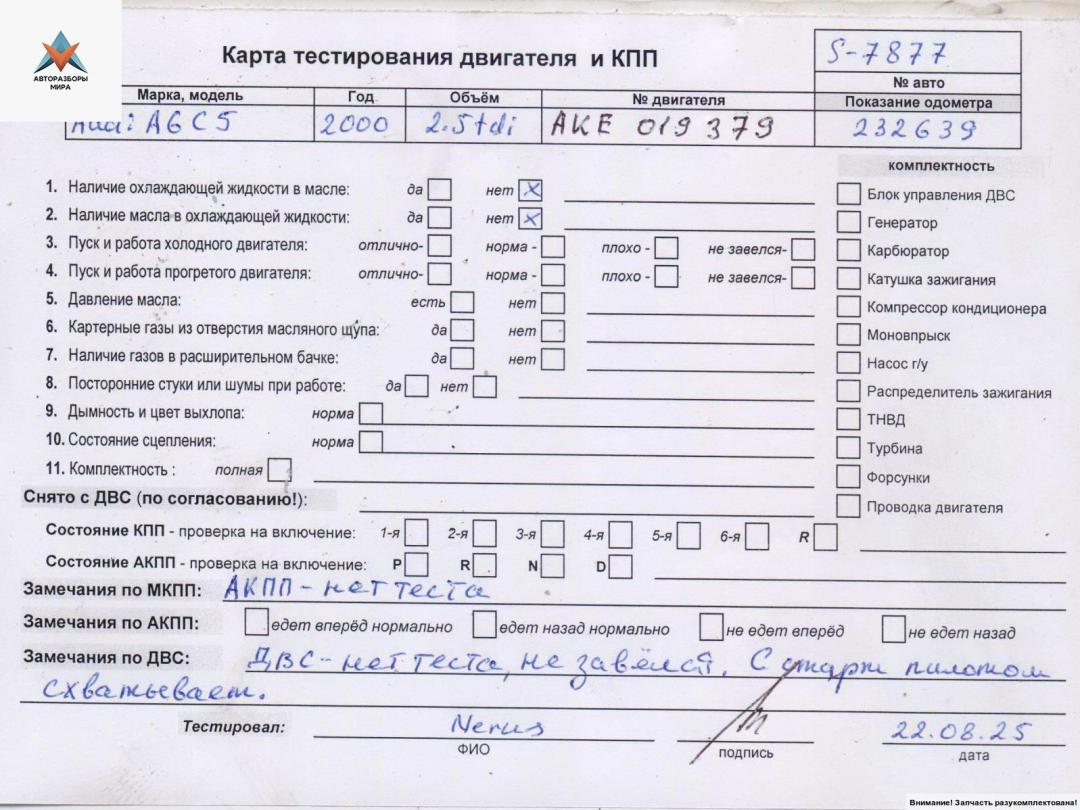 АВТОРАЗБОРЫ
МИРА
Карта тестирования двигателя и КПП
S-7877
№ авто
Марка, модель Год Объём № двигателя Показание одометра
Audi A6C5 2000 2.5tdi AKE 019379 232639
комплектность
1. Наличие охлаждающей жидкости в масле: да нет x Блок управления ДВС
2. Наличие масла в охлаждающей жидкости: да нет x Генератор
3. Пуск и работа холодного двигателя: отлично- норма - плохо - не завелся- Карбюратор
4. Пуск и работа прогретого двигателя: отлично- норма - плохо - не завелся- Катушка зажигания
5. Давление масла: есть нет Компрессор кондиционера
6. Картерные газы из отверстия масляного щупа: да нет Моновпрыск
7. Наличие газов в расширительном бачке: да нет Насос г/у
8. Посторонние стуки или шумы при работе: да нет Распределитель зажигания
9. Дымность и цвет выхлопа: норма ТНВД
10. Состояние сцепления: норма Турбина
11. Комплектность : полная Форсунки
Снято с ДВС (по согласованию!): Проводка двигателя
Состояние КПП - проверка на включение: 1-я 2-я 3-я 4-я 5-я 6-я R
Состояние АКПП - проверка на включение: P R N D
Замечания по МКПП: АКПП - нет теста
Замечания по АКПП: едет вперёд нормально едет назад нормально не едет вперёд не едет назад
Замечания по ДВС: ДВС - нет теста, не завёлся. С старт пилотом
схватывает.
Тестировал: Nerus 22.08.25
ФИО подпись дата
Внимание! Запчасть разукомплектована!